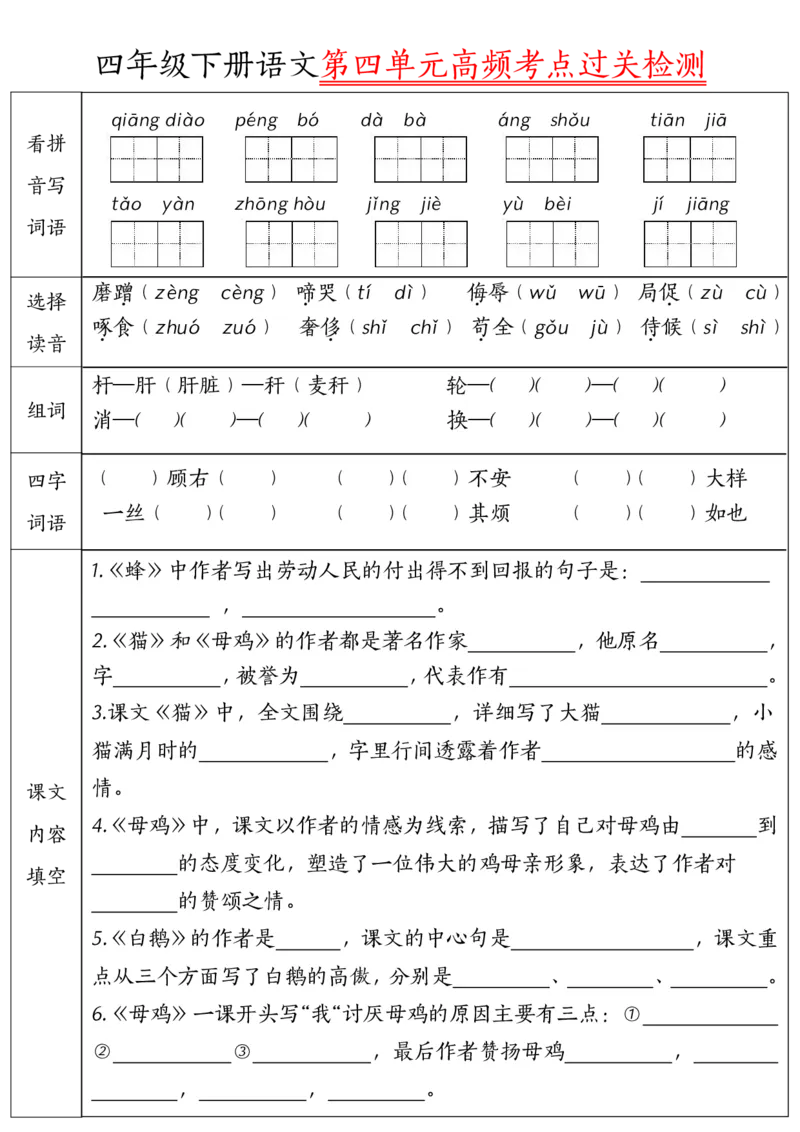 四年级下册语文第四单元高频考点过关检测
看拼音写词语
qiāng diào péng bó dà bà áng shǒu tiān jiā
tǎo yàn zhōng hòu jǐng jiè yù bèi jí jiāng
选择读音
磨蹭（zèng cèng） 啼哭（tí dì） 侮辱（wǔ wū） 局促（zù cù）
啄食（zhuó zuó） 奢侈（shǐ chǐ） 苟全（gǒu jù） 侍候（sì shì）
组词
杆—肝（肝脏）—秆（麦秆） 轮—( )( )—( )( )
消—( )( )—( )( ) 换—( )( )—( )( )
四字词语
（ ）顾右（ ） （ ）（ ）不安 （ ）（ ）大样
一丝（ ）（ ） （ ）（ ）其烦 （ ）（ ）如也
课文内容填空
1.《蜂》中作者写出劳动人民的付出得不到回报的句子是：____________
___________，__________________。
2.《猫》和《母鸡》的作者都是著名作家__________，他原名__________，
字__________，被誉为__________，代表作有________________________。
3.课文《猫》中，全文围绕__________，详细写了大猫____________，小
猫满月时的____________，字里行间透露着作者__________________的感
情。
4.《母鸡》中，课文以作者的情感为线索，描写了自己对母鸡由_______到
________的态度变化，塑造了一位伟大的鸡母亲形象，表达了作者对
________的赞颂之情。
5.《白鹅》的作者是______，课文的中心句是_________________，课文重
点从三个方面写了白鹅的高傲，分别是_________、________、_________。
6.《母鸡》一课开头写“我“讨厌母鸡的原因主要有三点：①_____________
②___________③___________，最后作者赞扬母鸡__________，________
________，__________，_________。